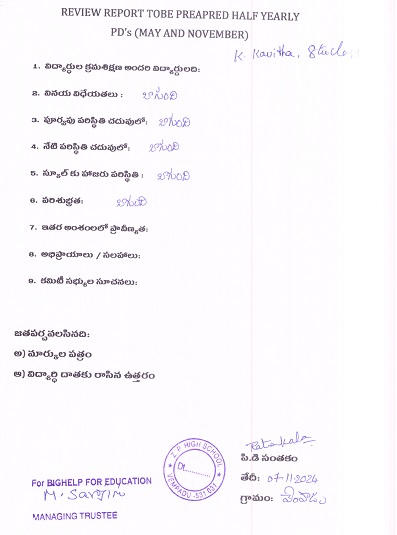 REVIEW REPORT TOBE PREAPRED HALF YEARLY
PD's (MAY AND NOVEMBER)
K. Kavitha,
1. విద్యార్థుల క్రమశిక్షణ అందరి విద్యార్థులది:
2. వినయ విధేయతలు : బాగుంది
3. పూర్వపు పరిస్థితి చదువులో: బాగుంది
4. నేటి పరిస్థితి చదువులో: బాగుంది
5. స్కూల్ కు హాజరు పరిస్థితి : బాగుంది
6. పరిశుభ్రత: బాగుంది
7. ఇతర అంశంలలో ప్రావీణ్యత:
8. అభిప్రాయాలు / సలహాలు:
9. కమిటీ సభ్యుల సూచనలు:
జతపర్చవలసినది:
అ) మార్కుల పత్రం
ఆ) విద్యార్థి దాతకు రాసిన ఉత్తరం
Z.P. HIGH SCHOOL
Dt.
VEMPADU
పి.డి సంతకం
తేదీ: 07-11-2024
గ్రామం: వేంపాడు
For BIGHELP FOR EDUCATION
MANAGING TRUSTEE